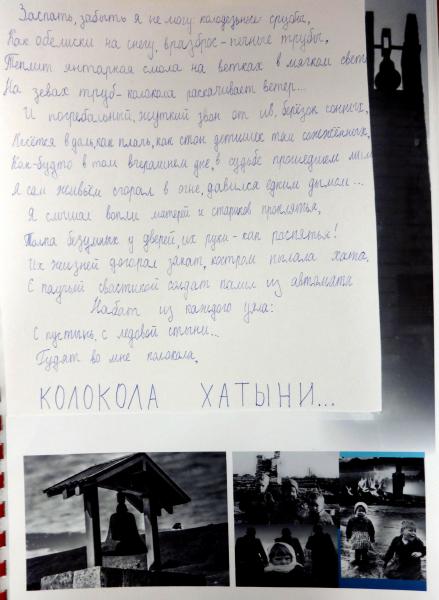 Заспать, забыть я не могу колодезные срубы,
Как обелиски на снегу, вразброс - печные трубы.
Теплит янтарная смола на ветках в мягком свете
На зевах труб - колокола раскачивает ветер...
И погребальный, жуткий звон от ив, берёзок сонных,
Несётся вдаль, как плачь, как стон детишек там сожжённых.
Как-будто в том вчерашнем дне, в судьбе прошедшем мы
Я сам живьём сгорал в огне, давился едким дымом...
Я слышал вопли матерей и стариков проклятья,
Толпа безумных у дверей, их руки - как распятья!
Их жизней догорал закат, костром пылала хата.
С паучьей свастикой солдат палил из автомата
Набат из каждого угла:
С пустынь, с ледовой стыни...
Гудят во мне колокола,
КОЛОКОЛА ХАТЫНИ...